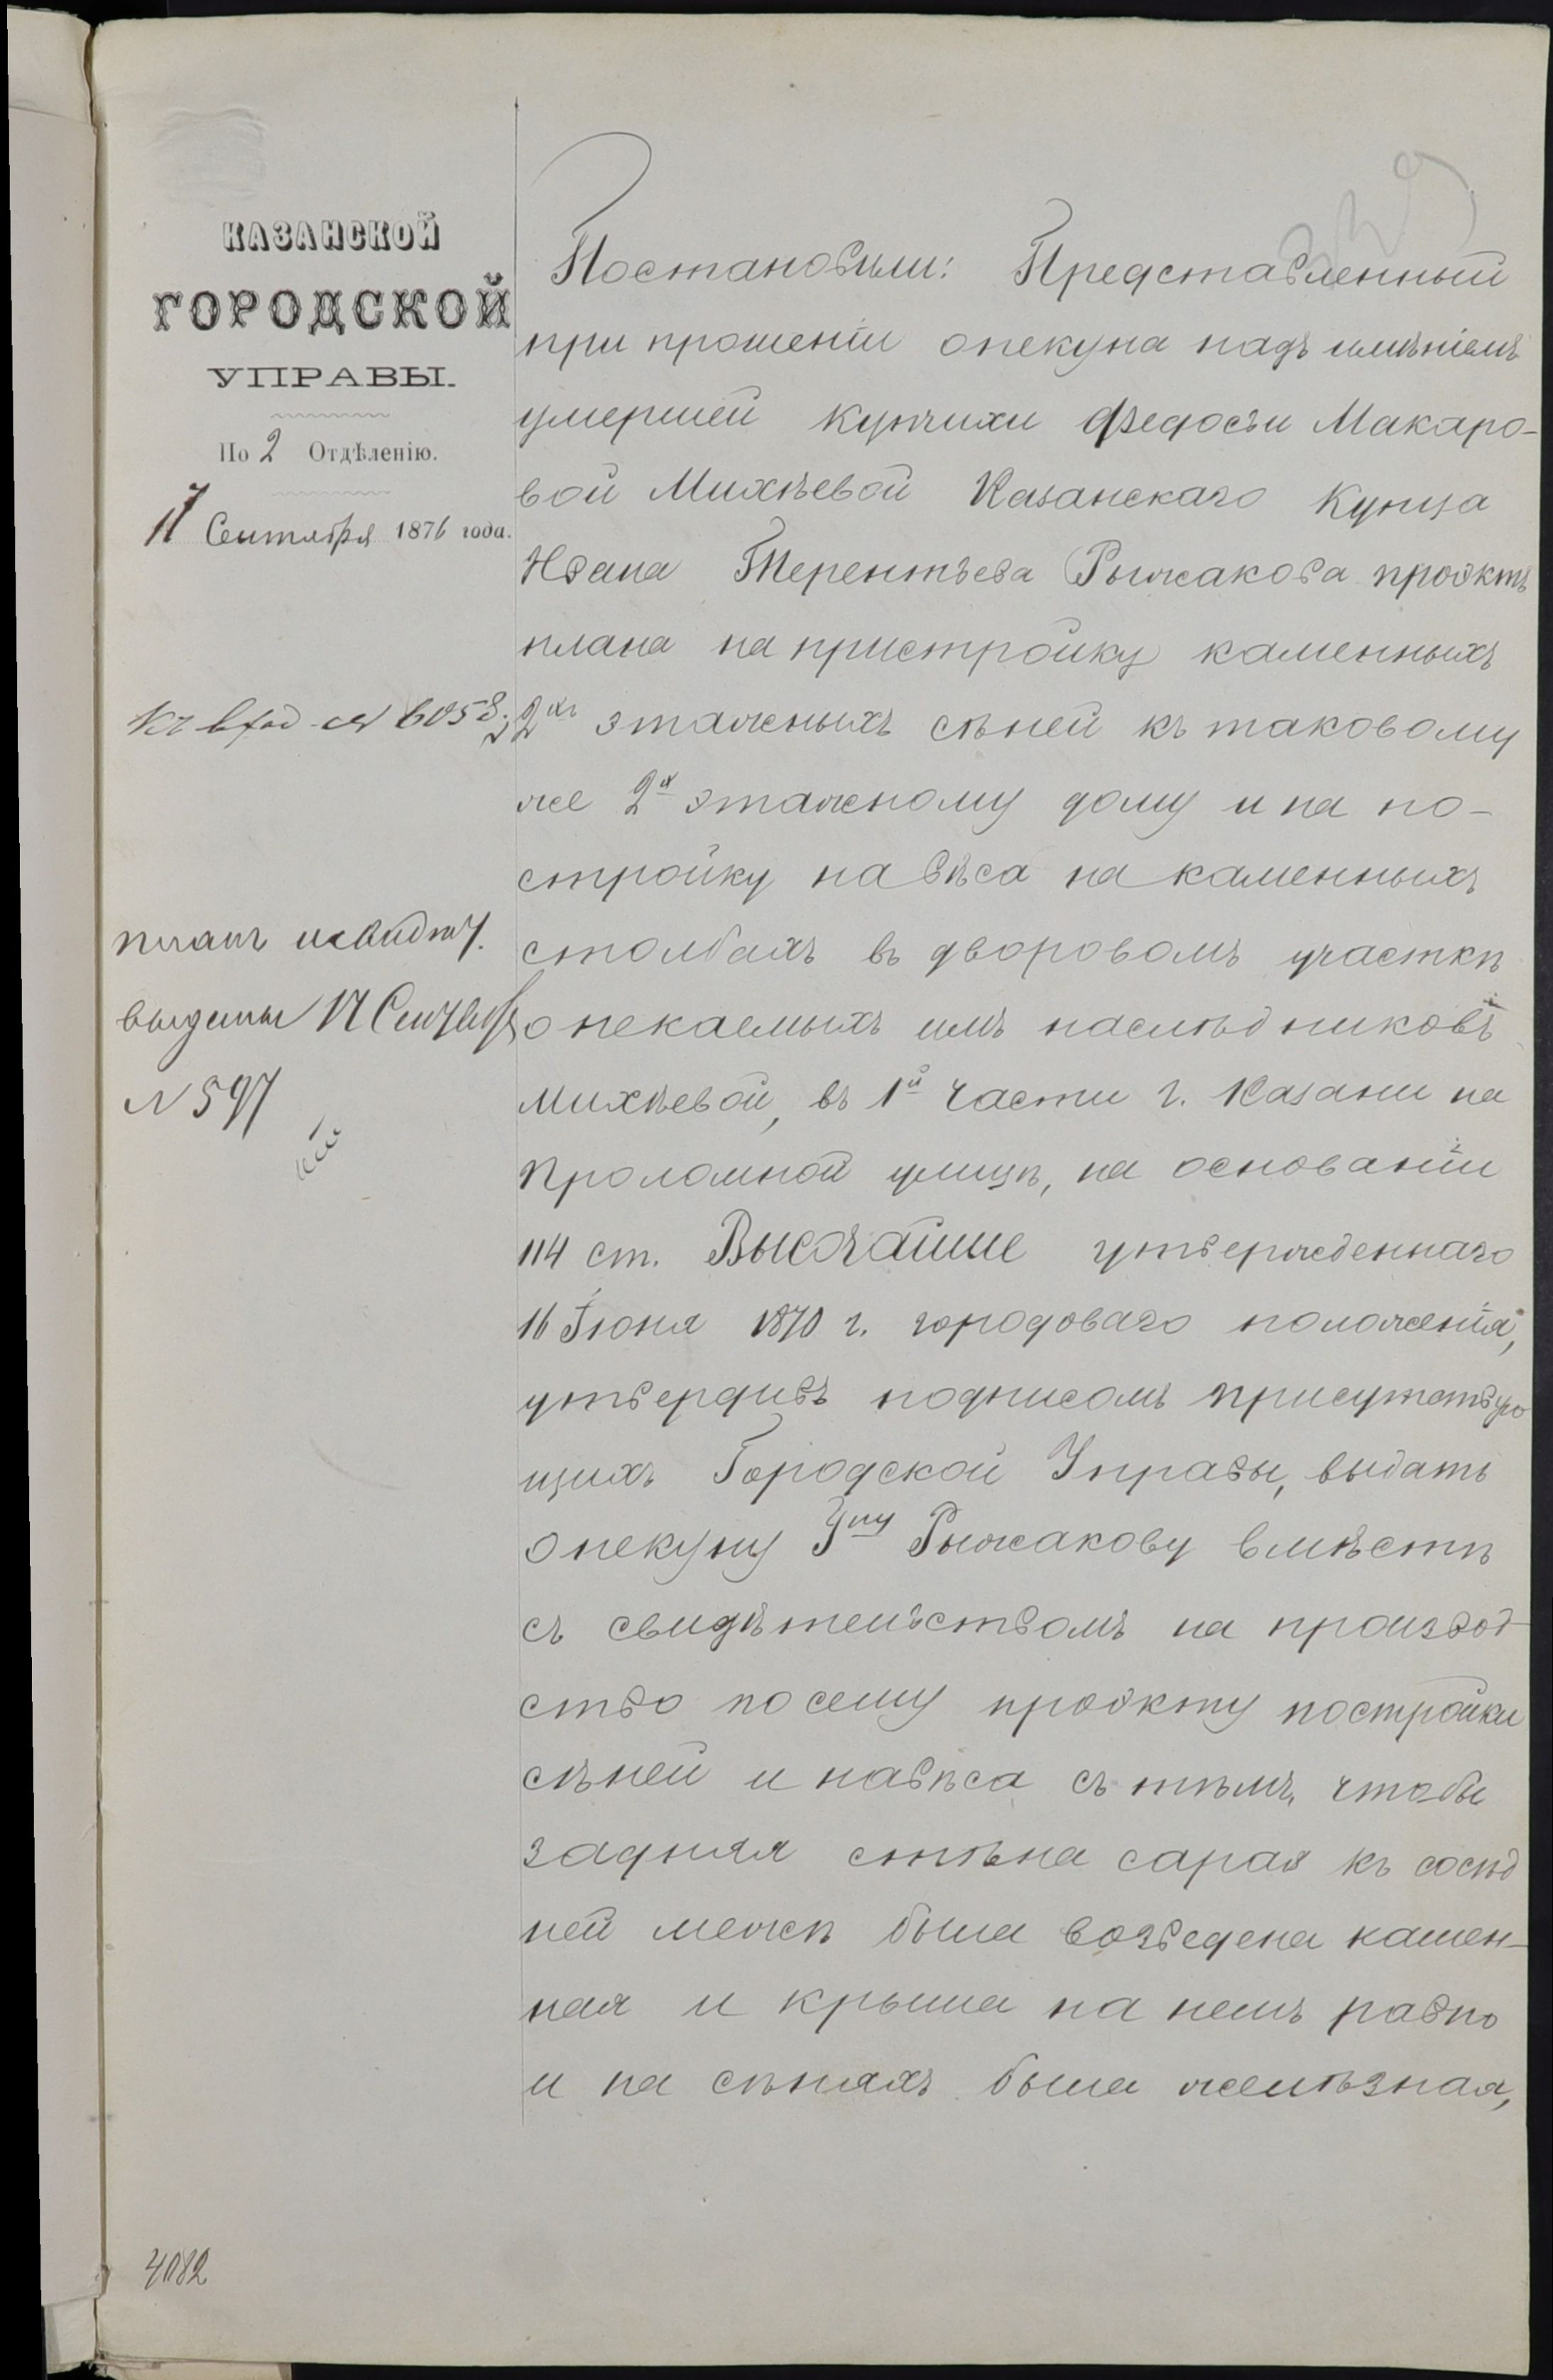 КАЗАНСКОЙ
ГОРОДСКОЙ
УПРАВЫ.
По 2 Отдѣленію.
Сентября 1876 года.
Къ вход № 6058.
планъ и свидѣт.
выданы 17 Сентяб
№ 597
Постановили: Представленный
при прошеніи опекуна надъ имѣніемъ
умершей купчихи Федосьи Макаро-
вой Михѣевой Казанскаго Купца
Ивана Терентьева Рыжакова проэктъ
плана на пристройку каменныхъ
2хъ этажныхъ сѣней къ таковому
же 2х этажному дому и на по-
стройку навѣса на каменныхъ
столбахъ въ дворовомъ участкѣ
опекаемыхъ имъ наслѣдниковъ
Михѣевой, въ 1й части г. Казани на
Проломной улицѣ, на основаніи
114 ст. Высочайше утвержденнаго
16 Іюня 1870 г. городоваго положенія,
утвердивъ подписомъ присутствую
щихъ Городской Управы, выдать
опекуну Гну Рыжакову вмѣстѣ
съ свидѣтельствомъ на производ-
ство по сему проэкту постройки
сѣней и навѣса съ тѣмъ, чтобы
задняя стѣна сарая къ сосѣд
ней межѣ была возведена камен-
ная и крыша на немъ равно
и на сѣняхъ была желѣзная,
4082